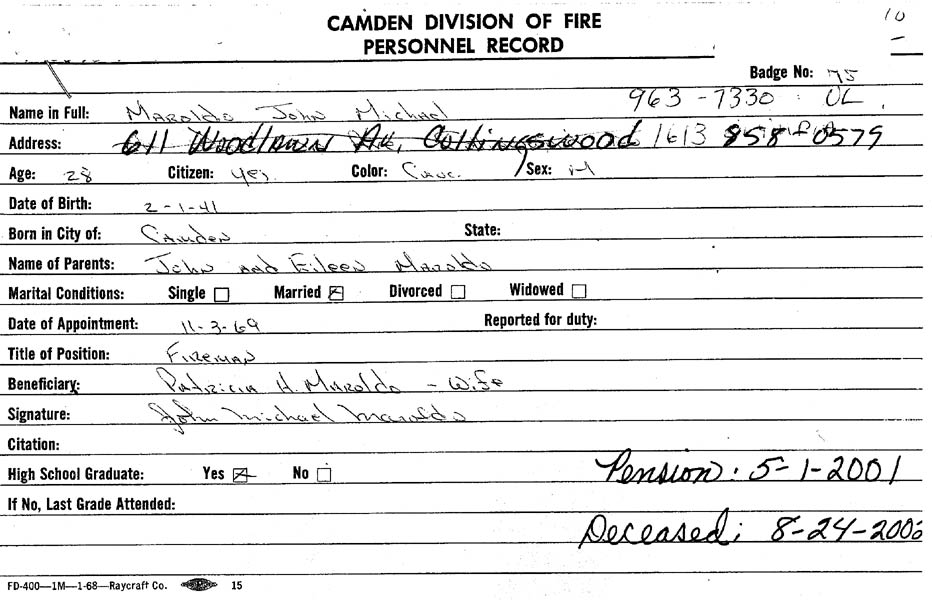 CAMDEN DIVISION OF FIRE
PERSONNEL RECORD
10
Badge No: 75
963-7330 UL
Name in Full: Maroldo John Michael
Address: 611 Woodlawn Av, Collingswood 1613 858-0579
Age: 28 Citizen: yes. Color: Cauc. Sex: M
Date of Birth: 2-1-41
Born in City of: Camden State:
Name of Parents: John and Eileen Maroldo
Marital Conditions: Single Married Divorced Widowed
Date of Appointment: 11-3-69 Reported for duty:
Title of Position: Fireman
Beneficiary: Patricia H. Maroldo - Wife
Signature: John Michael Maroldo
Citation:
High School Graduate: Yes No Pension: 5-1-2001
If No, Last Grade Attended:
Deceased; 8-24-200
FD-400—1M—1-68—Raycraft Co. 15